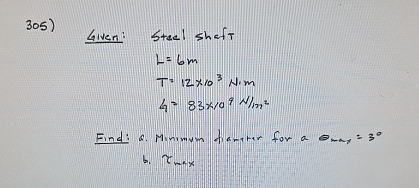 305)
Given: Steel shaft
L = 6m
T = 12 x 10³ N·m
G = 83 x 10⁹ N/m²
Find: a. Minimum diameter for a θmax = 3°
b. τmax